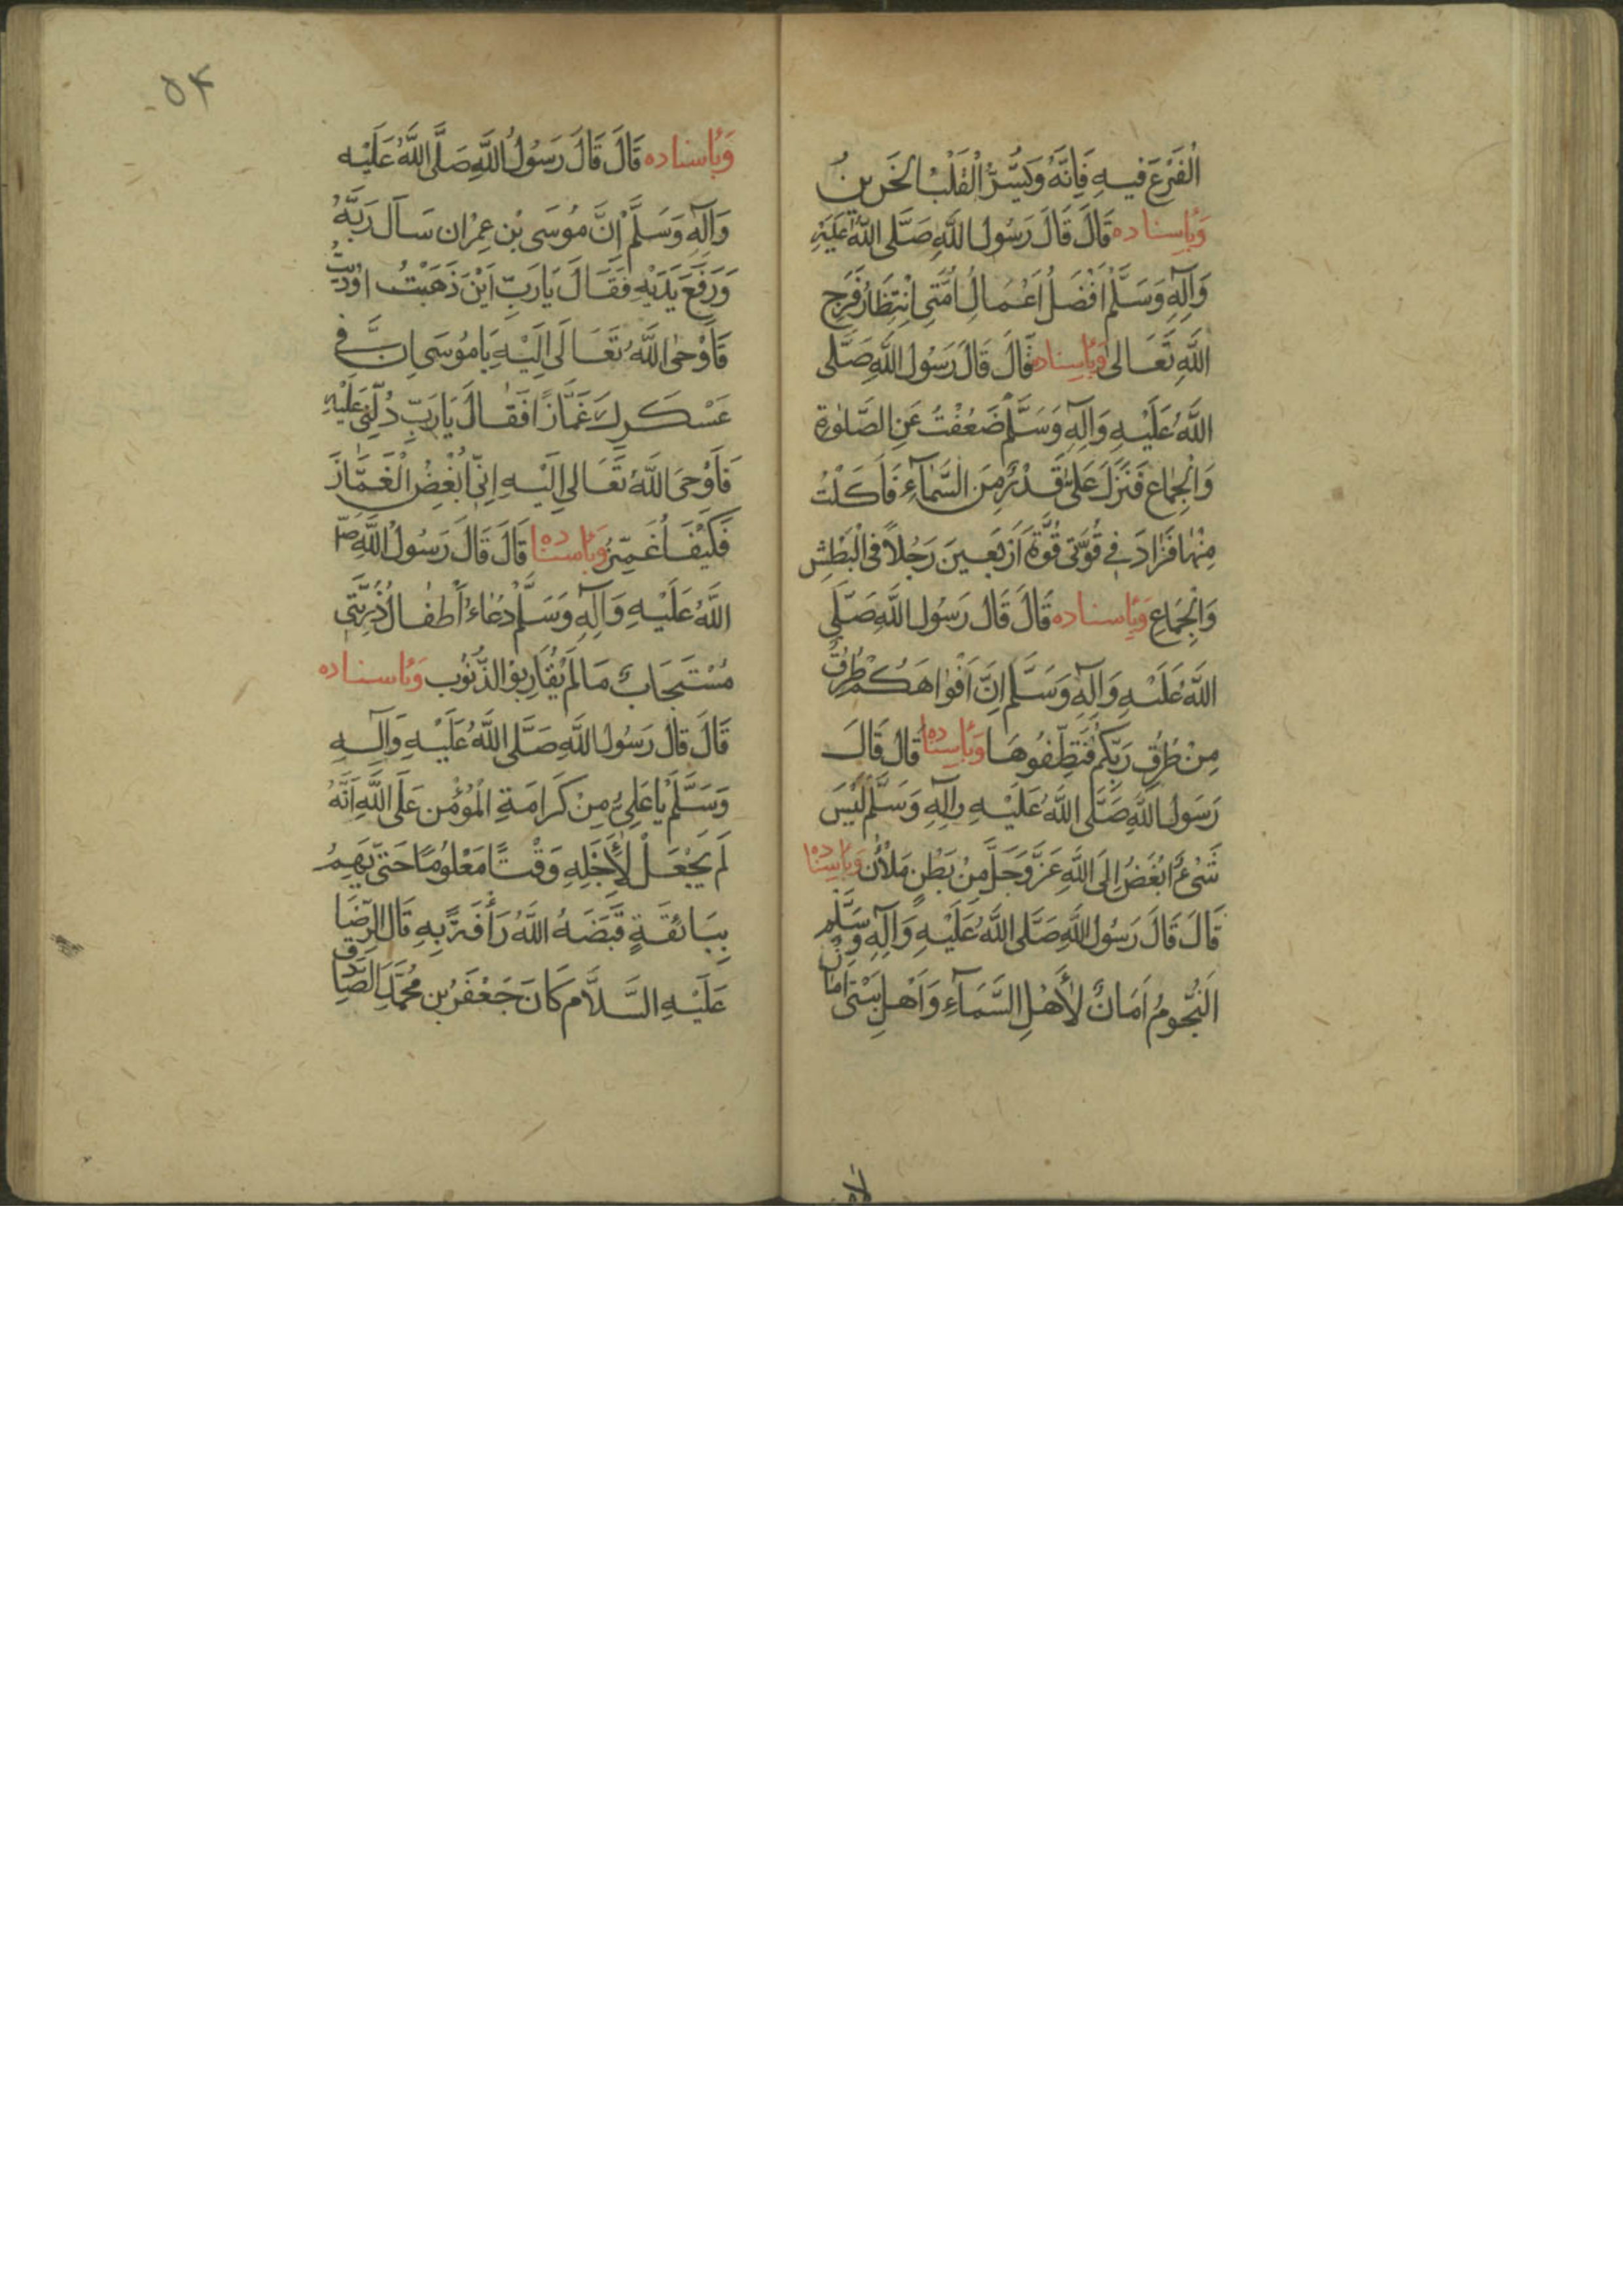 الْقَرْعَ فيهِ فَاِنَّهُ وَيَسُرُّ الْقَلْبَ الحَزينَ
وَبِاِسناده قَالَ قَالَ رَسُولُ اللَّهِ صَلَّى اللَّهُ عَلَيْهِ
وَآلِهِ وَسَلَّمْ اَفْضَلُ اَعْمَالِ اُمَّتِى اِنْتِظَارُ فَرَجِ
اللَّهِ تَعَالى وَبِاِسناده قَالَ قَالَ رَسُولُ اللَّهِ صَلَّى
اللَّهُ عَلَيْهِ وَآلِهِ وَسَلَّمْ ضَعُفْتُ عَنِ الصَّلوٰةِ
وَالْجِمٰاعِ فَنَزَلَ عَلَىَّ قَدْرٌ مِنَ السَّمٰآءِ فَاَكَلْتُ
مِنْهٰا فَزٰادَ فِي قُوَّتى قُوَّةَ اَرْبَعينَ رَجُلاً فى الْبَطْشِ
وَالْجِمَاعِ وَبِاِسناده قَالَ قَالَ رَسُولُ اللَّهِ صَلَّى
اللَّهُ عَلَيْهِ وَآلِهِ وَسَلَّم اِنَّ اَفْوٰاهَكُمْ طُرُقٌ
مِنْ طُرُقِ رَبِّكُمْ فَنَظِّفُوهَا وَبِاِسناده قَالَ قَالَ
رَسُولُ اللَّهِ صَلَّى اللَّهُ عَلَيْهِ وآلِهِ وَسَلَّمْ لَيْسَ
شَىْءٌ اَبْغَضُ اِلَى اللَّهِ عَزَّوَجَلَّ مِنْ بَطْنٍ مَلْأٰن وَبِاِسناده
قَالَ قَالَ رَسُولُ اللَّهِ صَلَّى اللَّهُ عَلَيْهِ وَآلِهِ وَسَلَّم
اَلنُّجُومُ اَمَانٌ لِأَهْلِ السَّمَآءِ وَاَهْلِ بَيْتى اَمٰانٌ
۵۴
وَبِاِسناده قَالَ قَالَ رَسُولُ اللَّهِ صَلَّى اللَّهُ عَلَيْه
وَآلِهِ وَسَلَّمْ اِنَّ مُوسَى بْنَ عِمْرٰان سَأَلَ رَبَّهُ
وَرَفَعَ يَدَيْهِ فَقَالَ يَا رَبِّ اَيْنَ ذَهَبْتُ اُوذيتُ
فَاَوْحىَ اللَّهُ تَعَالَى اِلَيْهِ يَا مُوسَى اِنَّ فى
عَسْكَرِكَ غَمَّازًا فَقَالَ يَا رَبِّ دُلَّنِى عَلَيْهِ
فَاَوْحىَ اللَّهُ تَعَالى اِلَيْهِ اِنّى اُبْغِضُ الْغَمَّازَ
فَكَيْفَ اُغَمِّزُ وَبِاِسناده قَالَ قَالَ رَسُولُ اللَّهِ ص
اللَّهُ عَلَيْهِ وَآلِهِ وَسَلَّمْ دُعٰاءُ اَطْفٰالِ ذُرِّيَّتى
مُسْتَجَابٌ مَا لَمْ يُقٰارِبُوا الذُّنُوب وَبِاِسناده
قَالَ قَالَ رَسُولُ اللَّهِ صَلَّى اللَّهُ عَلَيْهِ وَآلِهِ
وَسَلَّمْ يٰا عَلِىُّ مِنْ كَرَامَةِ الْمُؤْمِن عَلَى اللَّهِ اَنَّهُ
لَمْ يَجْعَلْ لِأَجَلِهِ وَقْتًا مَعْلُومًا حَتّى يَهِمُ
بِبَائِقَةٍ قَبَضَهُ اللَّهُ رَأْفَةً بِهِ قَالَ الرِّضَا
عَلَيْهِ السَّلاَم كَانَ جَعْفَرُ بن مُحَمَّدِ الصّٰادِق